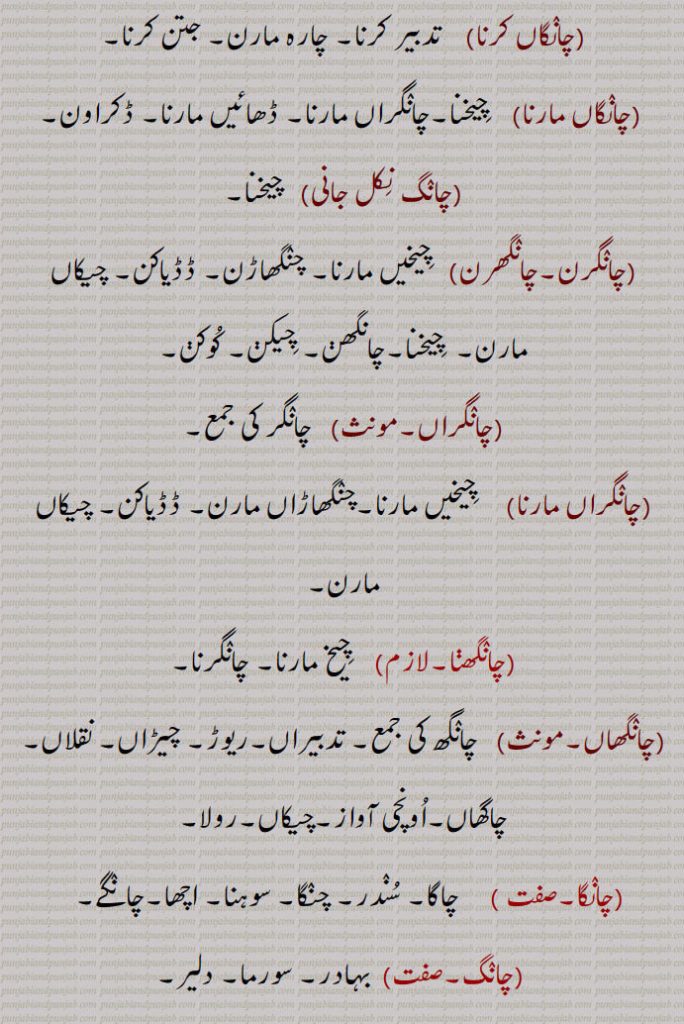 (چانگاں کرنا) تدبیر کرنا۔ چارہ مارن۔ جتن کرنا۔
(چانگاں مارنا) چِیخنا۔چانگراں مارنا۔ ڈھائیں مارنا۔ ڈکراون۔
(چانگ نِکل جانی) چیخنا۔
(چانگرن۔چانگھرن) چِیخیں مارنا۔ چنگھاڑن۔ ڈڈیاکن۔ چیکاں
مارن۔ چِیخنا۔چانگھن۔چِیکن۔ کُوکن۔
(چانگراں۔مونث) چانگر کی جمع۔
(چانگراں مارنا) چِیخیں مارنا۔چنگھاڑاں مارن۔ ڈڈیاکن۔ چیکاں
مارن۔
(چانگھنا۔لازم) چِیخ مارنا۔ چانگرنا۔
(چانگھاں۔مونث) چانگھ کی جمع۔ تدبیراں۔ریوڑ۔ چیڑاں۔ نقلاں۔
چاگھاں۔اُونچی آواز۔چیکاں۔رولا۔
(چانگا۔صفت ) چاگا۔ سُندر۔ چنگا۔ سوہنا۔ اچھا۔چانگے۔
(چانگ۔صفت) بہادر۔ سورما۔ دلیر۔